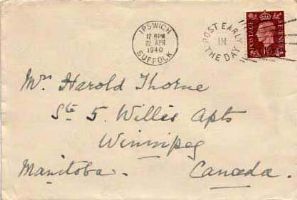 IPSWICH
12 30PM
22 APR
1940
SUFFOLK
POST EARLY
IN
THE DAY
Mr Harold Thorne
Ste 5. Willis Apts
Winnipeg
Manitoba. Canada.